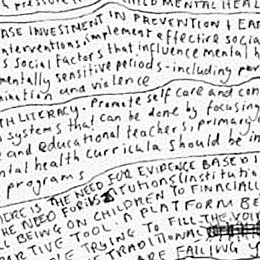 PRESSURE IN CHILD MENTAL HEAL
ASE INVESTMENT IN PREVENTION + EAR
interventions, implement effective socia
s social factors that influence mental h
mentally sensitive periods - including
mination and violence
TH LITERACY. Promote self care and con
systems that can be done by focusing
e and educational teachers, primary
ntal health curricula should be in
programs
HERE IS THE NEED FOR EVIDENCE BASED
HE NEED FOR INSTITUTIONS (institutio
LL BEING ON CHILDREN TO FINACIALL
PARTIVE TOOL. A PLATFORM BE
TRYING TO FILL THE VOI
TRADITIONAL
ARE FAILING Y